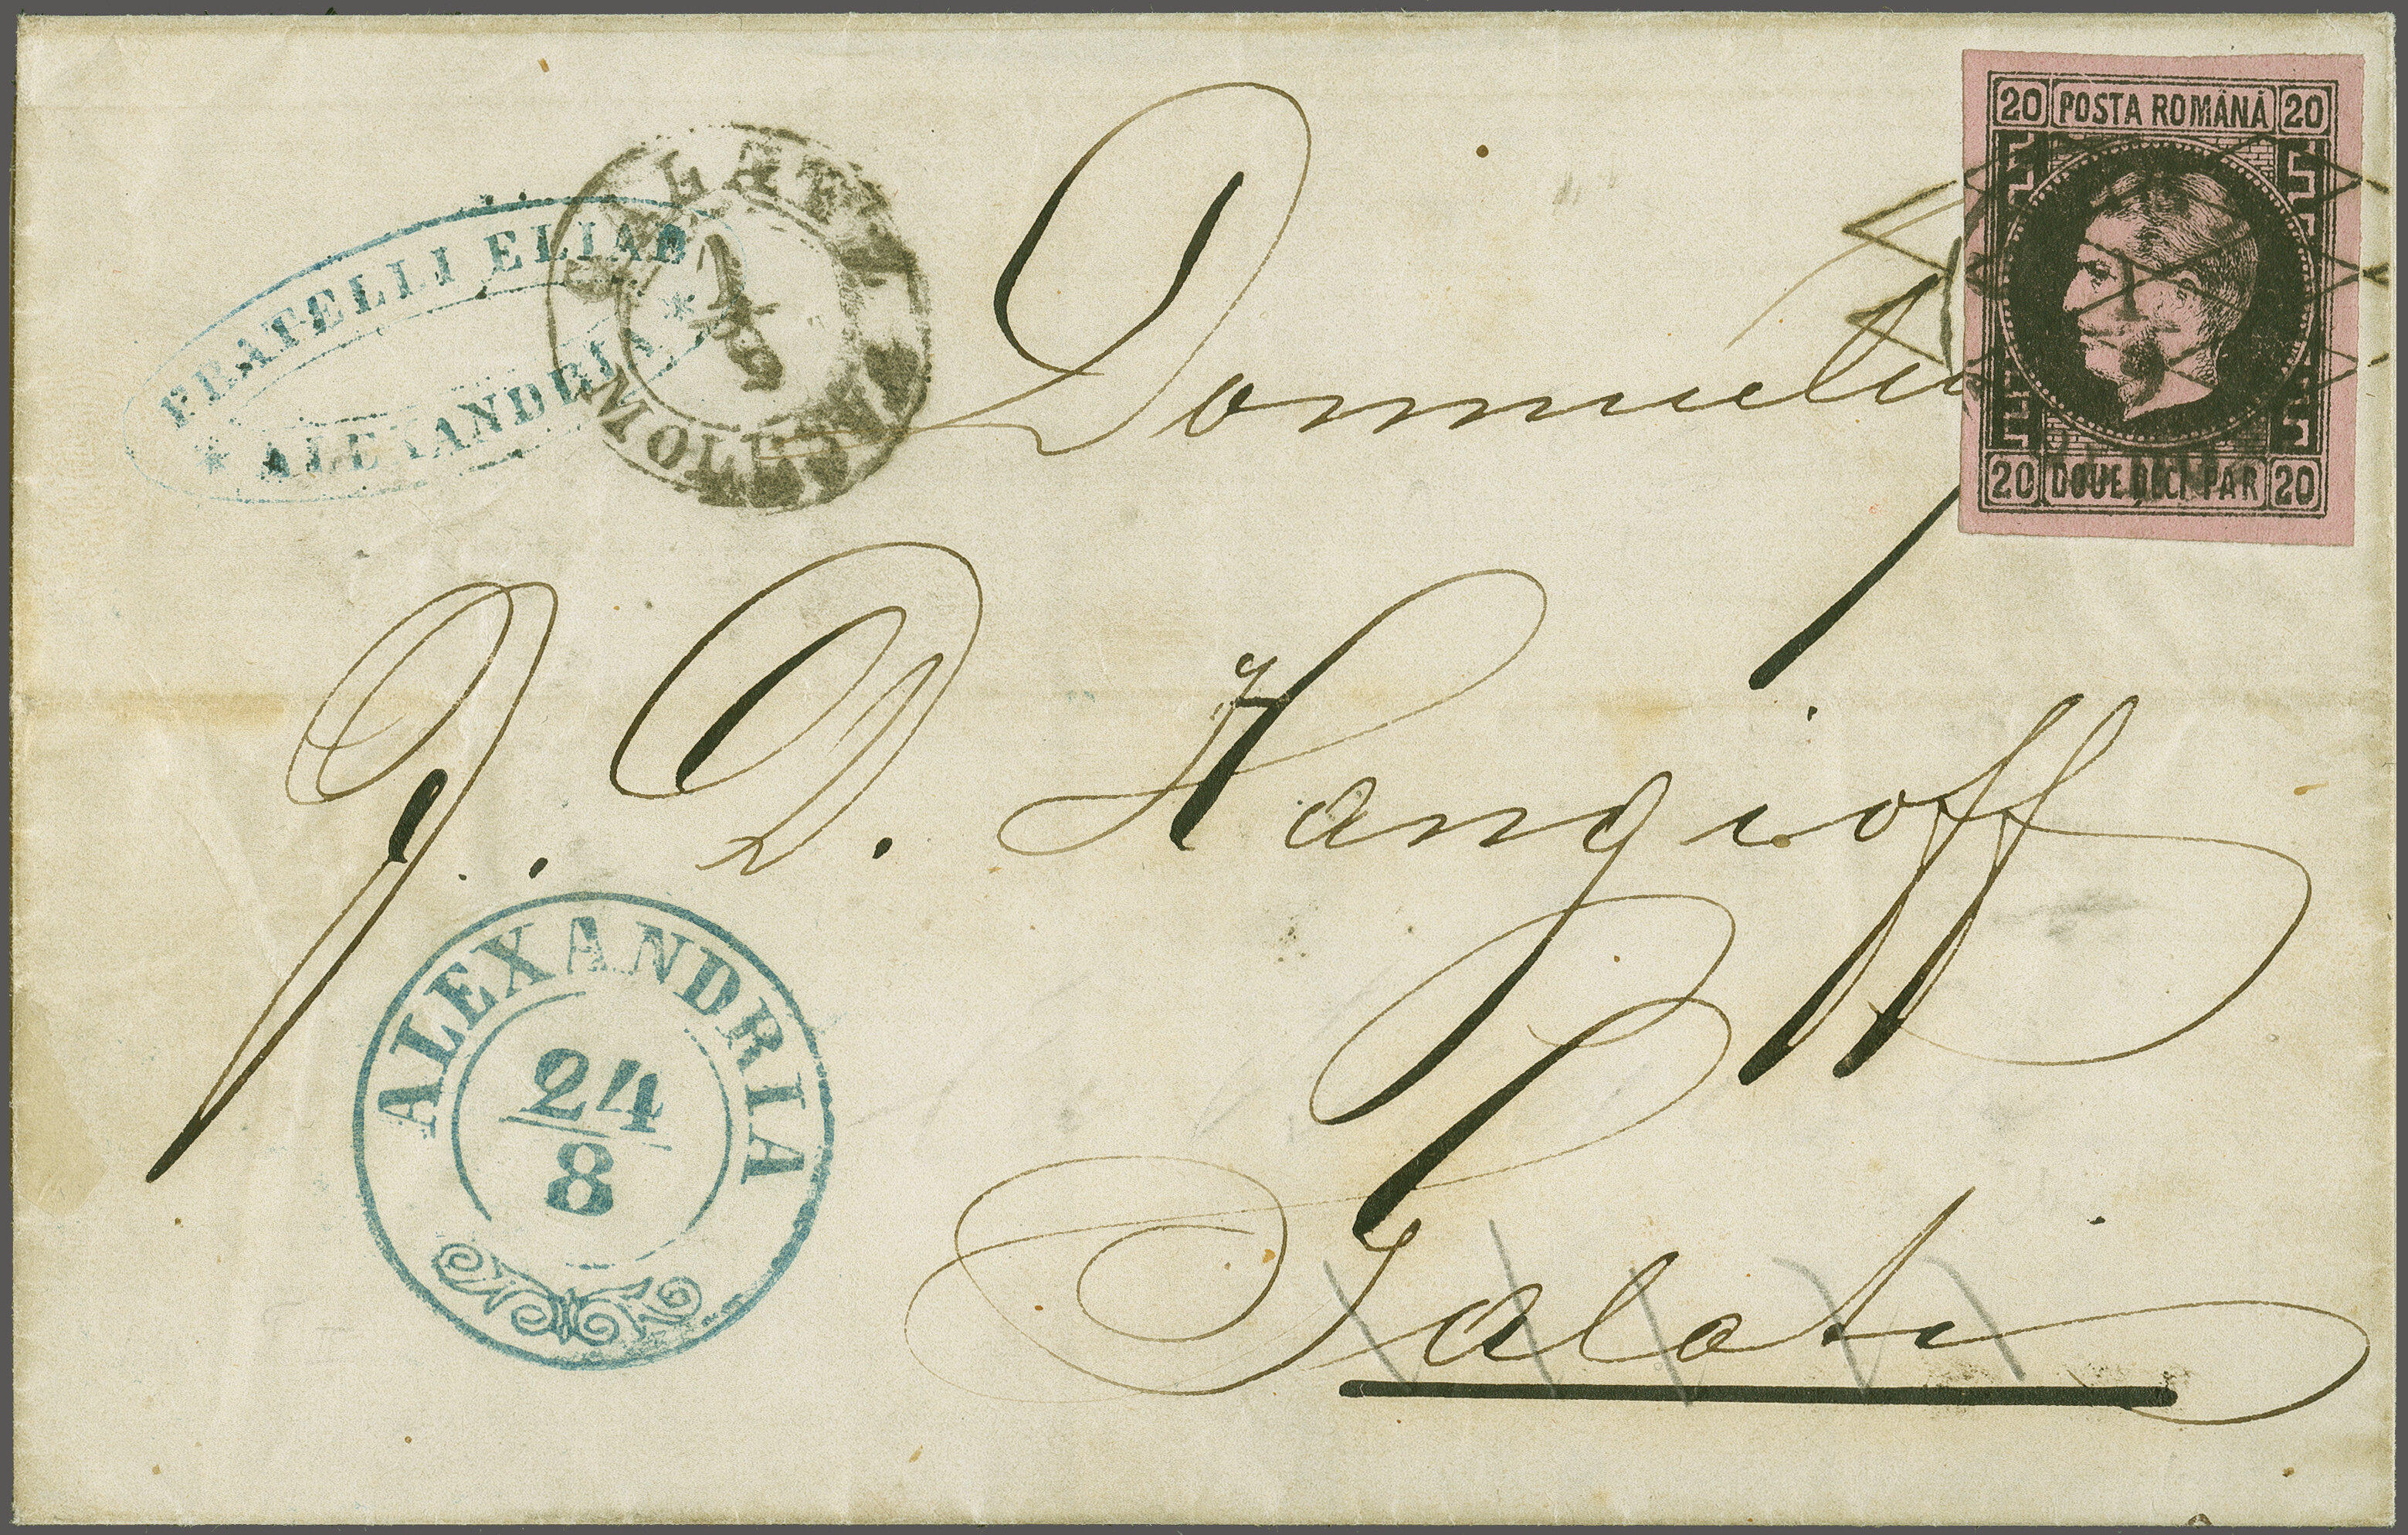 20 POSTA ROMÂNĂ 20
20 DOUE DECI PAR 20
FRATELLI ELIAD
* ALEXANDRIA *
GALATZ
MOLDOVA
Domnului
J. D. Hangioff
Galati
ALEXANDRIA
24
8